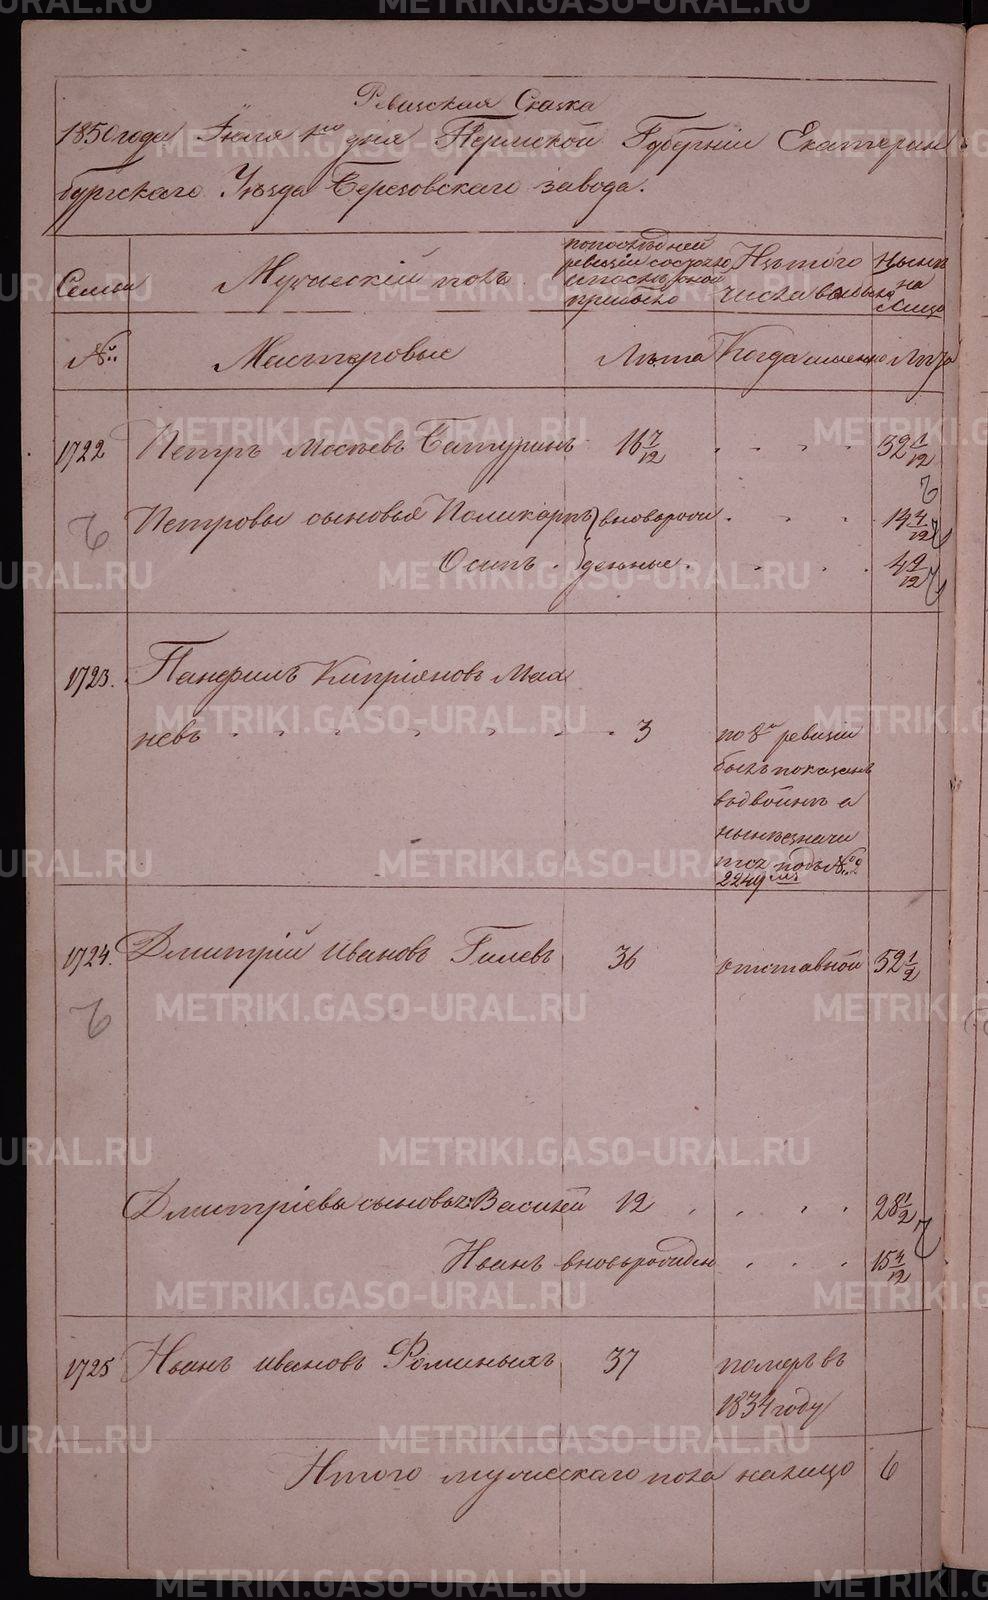 Ревизская Сказка
1850 года Июля 1го дня Пермской Губерніи Екатерин
бургскаго Уезда Березовскаго завода.
Семьи
Мужескій полъ
по последней ревизіи состояло и после оной прибыло
Изъ того числа выбыло
Ныне на лицо
№
Мастеровые
Лета
Когда именно
Лета
1722 Петръ Мосеевъ Батуринъ 16 7/12 52 1/12
Петровы сыновья Поликарпъ вноворож 14 4/12
Осипъ денные 4 9/12
1723. Панфилъ Кипріяновъ Мах
невъ 3 по 8й ревизіи
былъ показанъ
вдвойне а
ныне значи
тся подъ №
2249мъ
1724. Дмитрій Ивановъ Гилевъ 36 отставной 52 1/2
Дмитріевы сыновья Василей 12 28 1/2
Иванъ вноворожден 15 4/12
1725 Иванъ Ивановъ Фоминыхъ 37 померъ въ
1834 году
Итого мужескаго пола налицо 6
METRIKI.GASO-URAL.RU